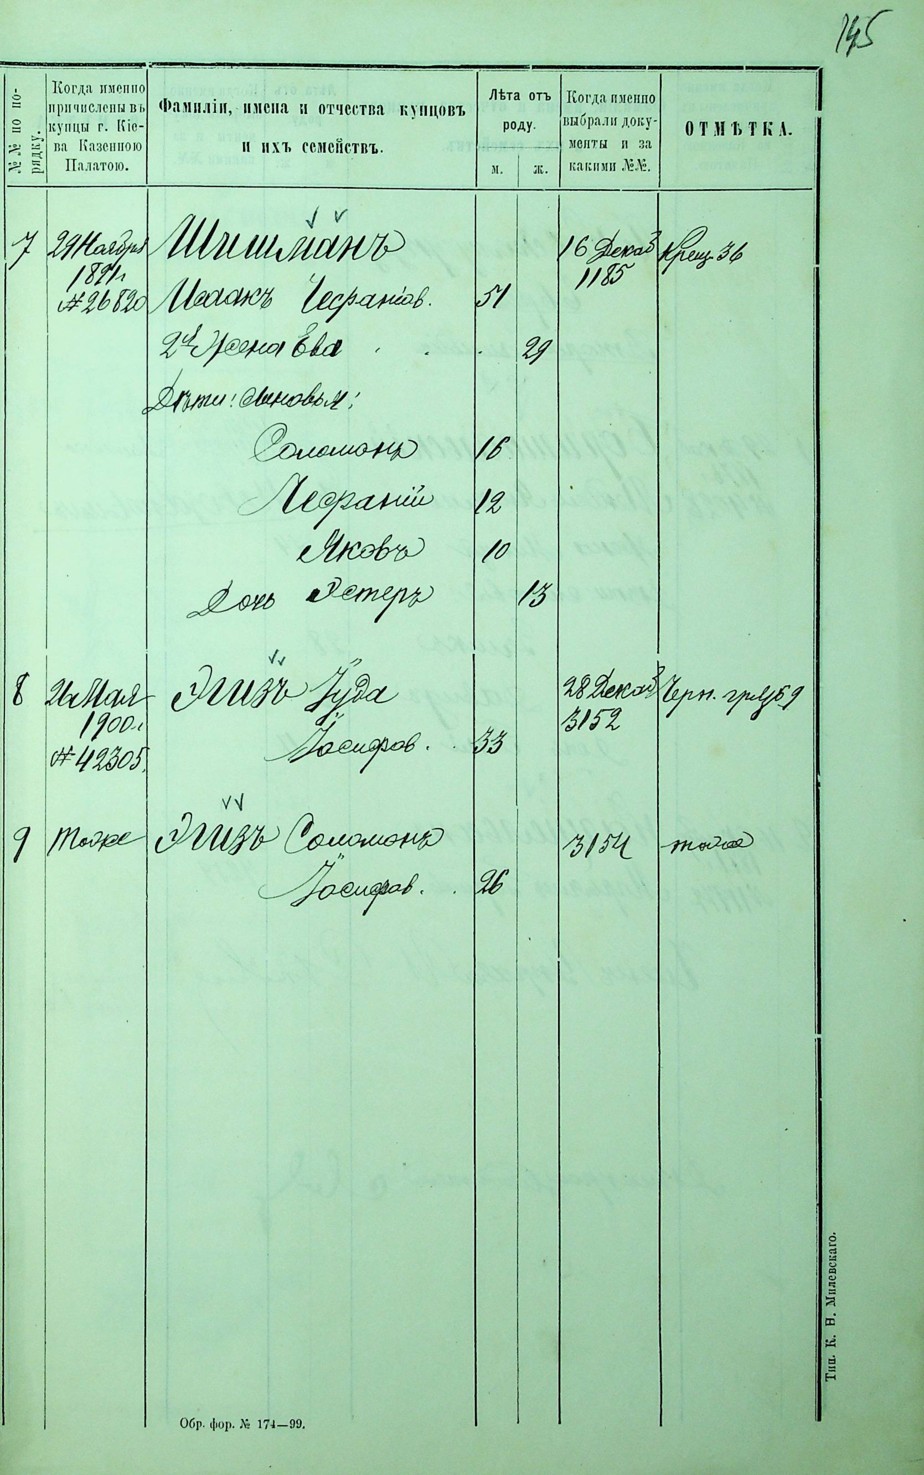 145
№№ по по-
рядку.
Когда именно
причислены въ
купцы г. Кіе-
ва Казенною
Палатою.
Фамиліи, имена и отчества купцовъ
и ихъ семействъ.
Лѣта отъ
роду.
м.
ж.
Когда именно
выбрали доку-
менты и за
какими №№.
ОТМѢТКА.
7
29 Ноября
№ 26820
Шишманъ
16 Декаб
1185
Крещ 36
Исаакъ
51
2я Жена Ева
29
Дѣти: сыновья:
Соломонъ
16
12
Яковъ
10
Дочь Эстеръ
13
8
Мая
1900 г.
№ 42305.
Эгизъ Іуда
28 Декаб
3152
Черн. гряз 9
Іосифов.
33
9
тоже
Эгизъ Соломонъ
3154
тоже
Іосифов.
26
Обр. фор. № 174—99.
Тип. К. Н. Милевскаго.